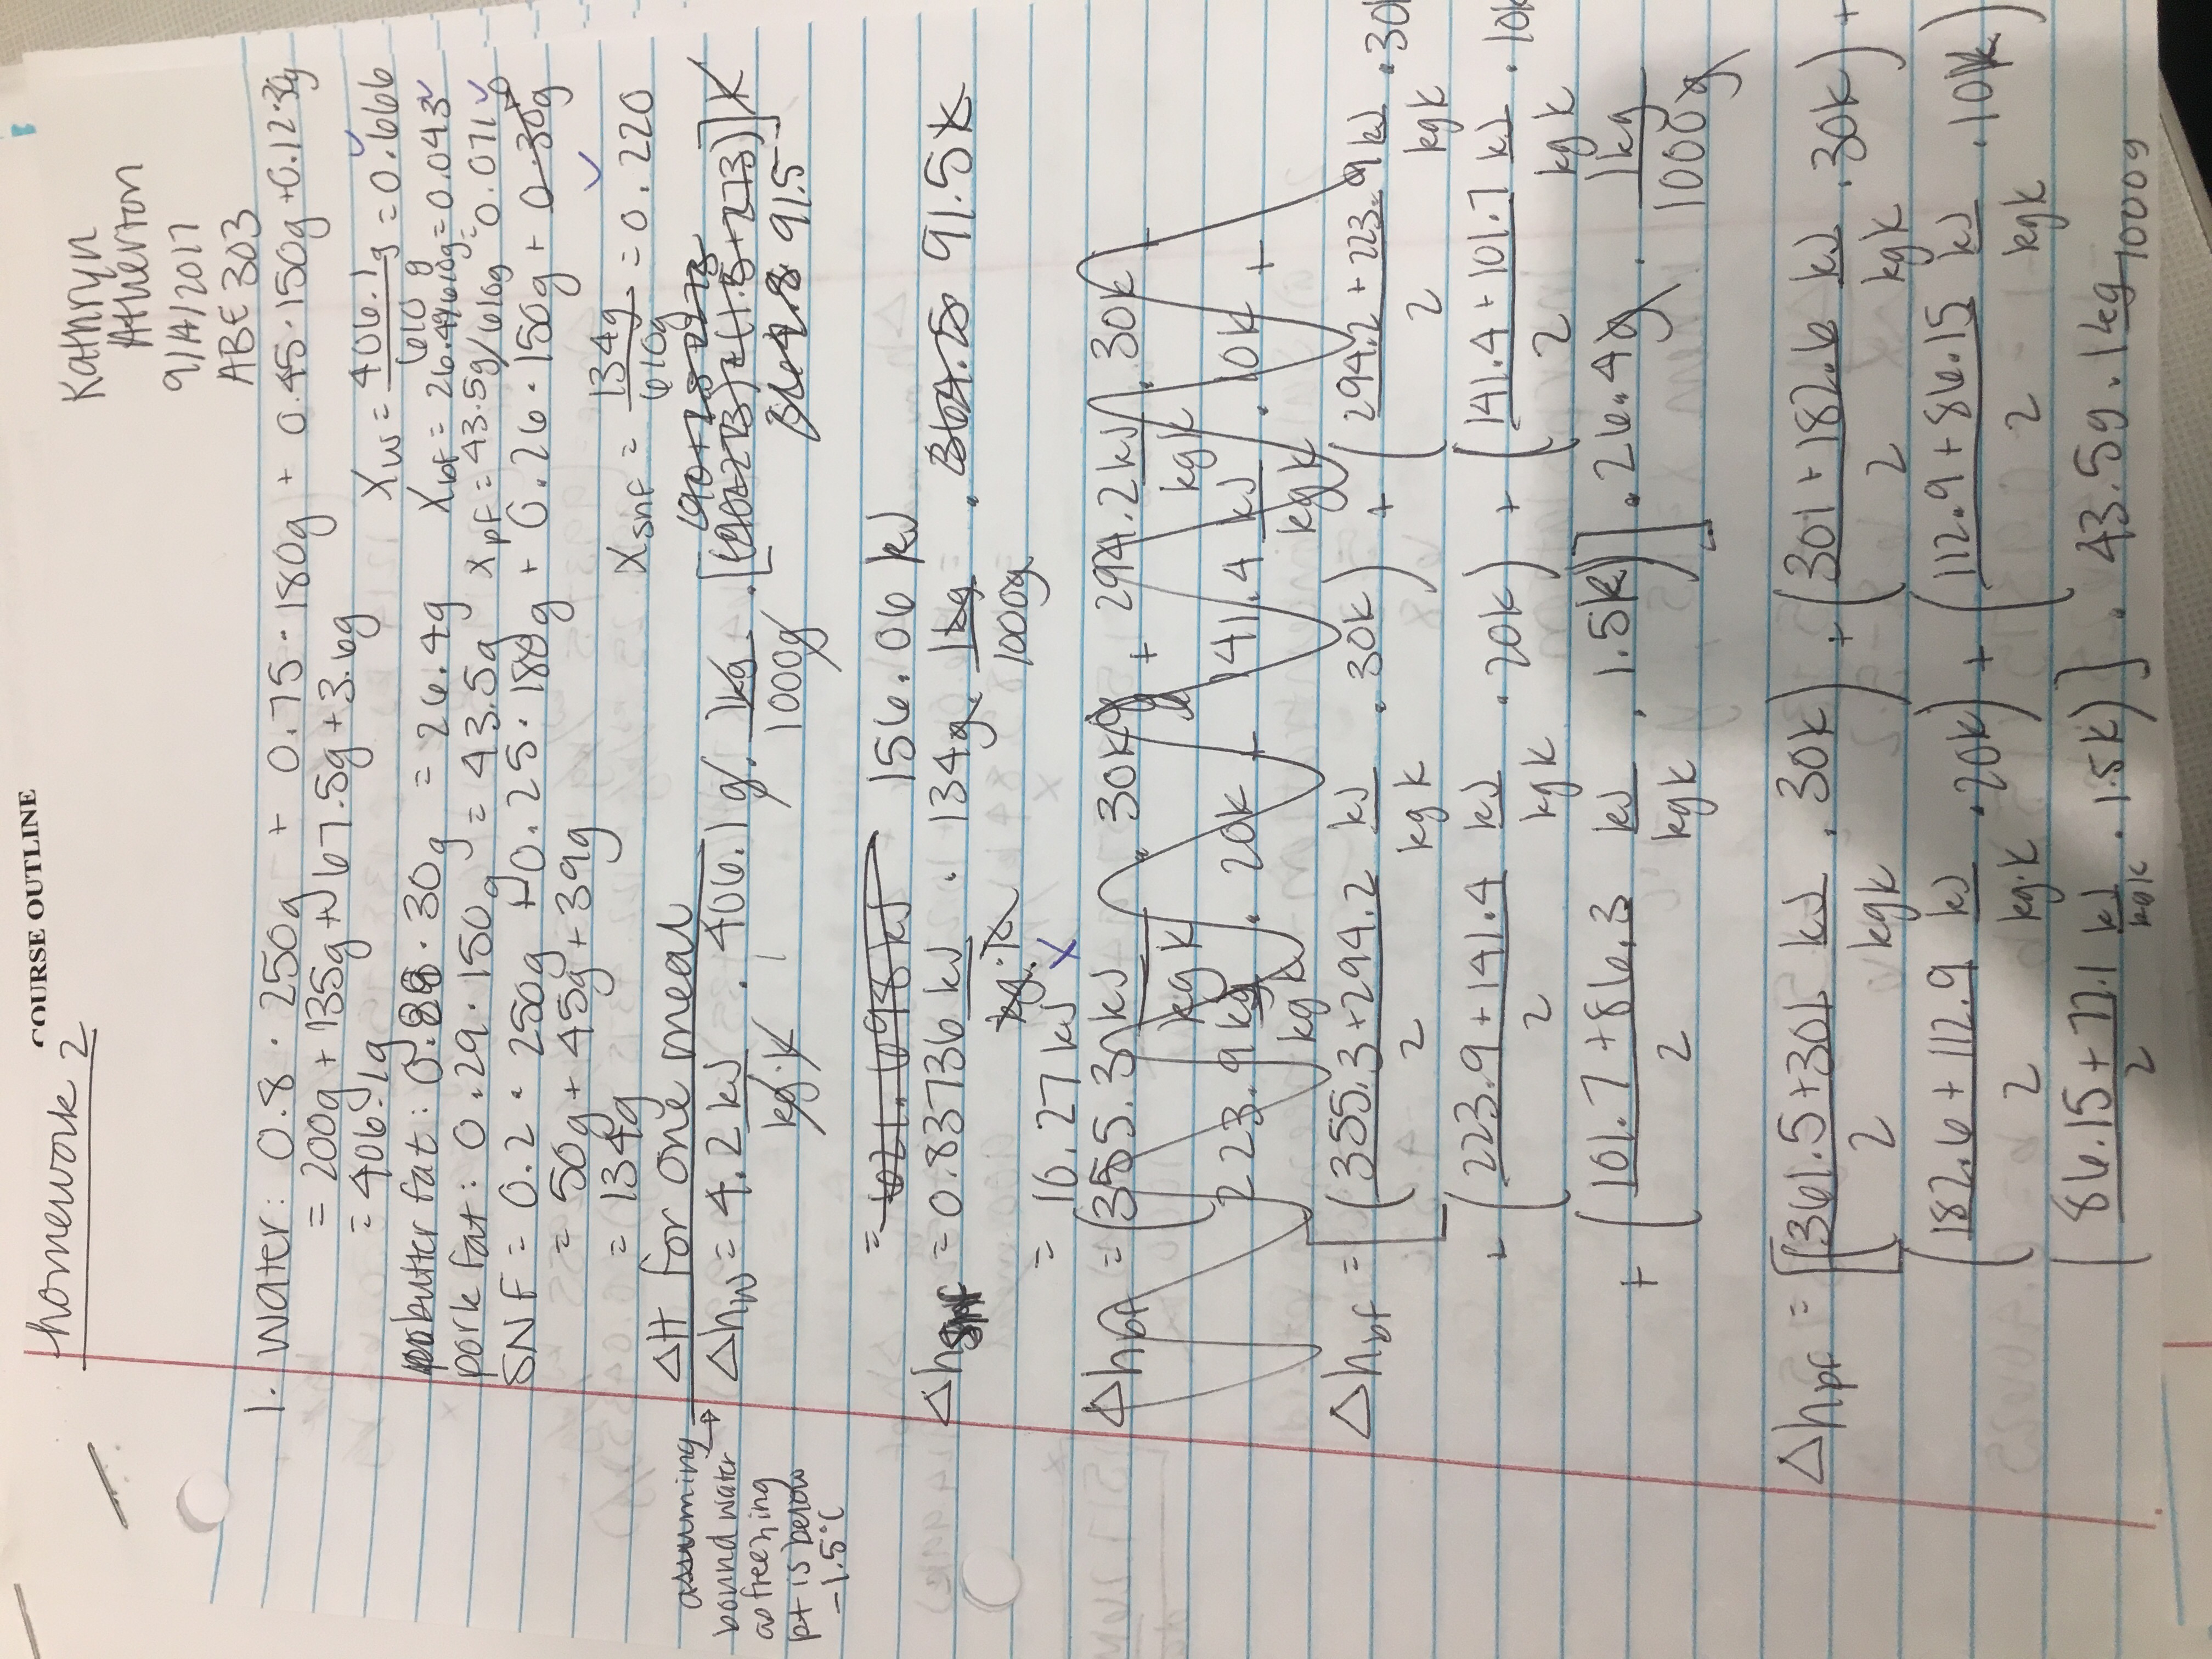 COURSE OUTLINE
homework 2
Kathryn
Atherton
9/14/2017
ABE 303
1. Water: 0.8 · 250g + 0.75 · 180g + 0.45 · 150g + 0.12 · 30g
= 200g + 135g + 67.5g + 3.6g
= 406.1g
Xw = 406.1g / 610 g = 0.666 ✓
butter fat: 0.88 · 30g = 26.4g
Xbf = 26.4g/610g = 0.043 ✓
pork fat: 0.29 · 150g = 43.5g
Xpf = 43.5g/610g = 0.071 ✓
SNF = 0.2 · 250g + 0.25 · 180g + 0.26 · 150g + 0·30g 0
= 50g + 45g + 39g
= 134g
Xsnf = 134g / 610g = 0.220 ✓
ΔH for one meal
assuming
bound water
as freezing
pt is below
-1.5°C
Δhw = 4.2 kJ/kg·K · 406.1g · 1kg/1000g · [(90+273)-(1.5+273)] K
91.5
= 621.698 kJ 156.06 kJ
Δhsnf = 0.83736 kJ/kg·K · 134g · 1kg/1000g · 364.5 91.5K
= 10.27 kJ X
Δhbf = (355.3 kJ/kgK · 30K + 294.2 kJ/kgK · 30K
223.9 kJ/kgK · 20K + 141.4 kJ/kgK · 10K +
Δhbf = [(355.3+294.2/2 kJ/kgK · 30K) + (294.2+223.9/2 kJ/kgK · 30K
+ (223.9+141.4/2 kJ/kgK · 20K) + (141.4+101.7/2 kJ/kgK · 10K
+ (101.7+86.3/2 kJ/kgK · 1.5K)] · 26.4g · 1kg/1000g
Δhpf = [(361.5+301/2 kJ/kgK · 30K) + (301+182.6/2 kJ/kgK · 30K) +
(182.6+112.9/2 kJ/kg·K · 20K) + (112.9+86.15/2 kJ/kgK · 10K)
(86.15+77.1/2 kJ/kgK · 1.5K)] · 43.5g · 1kg/1000g